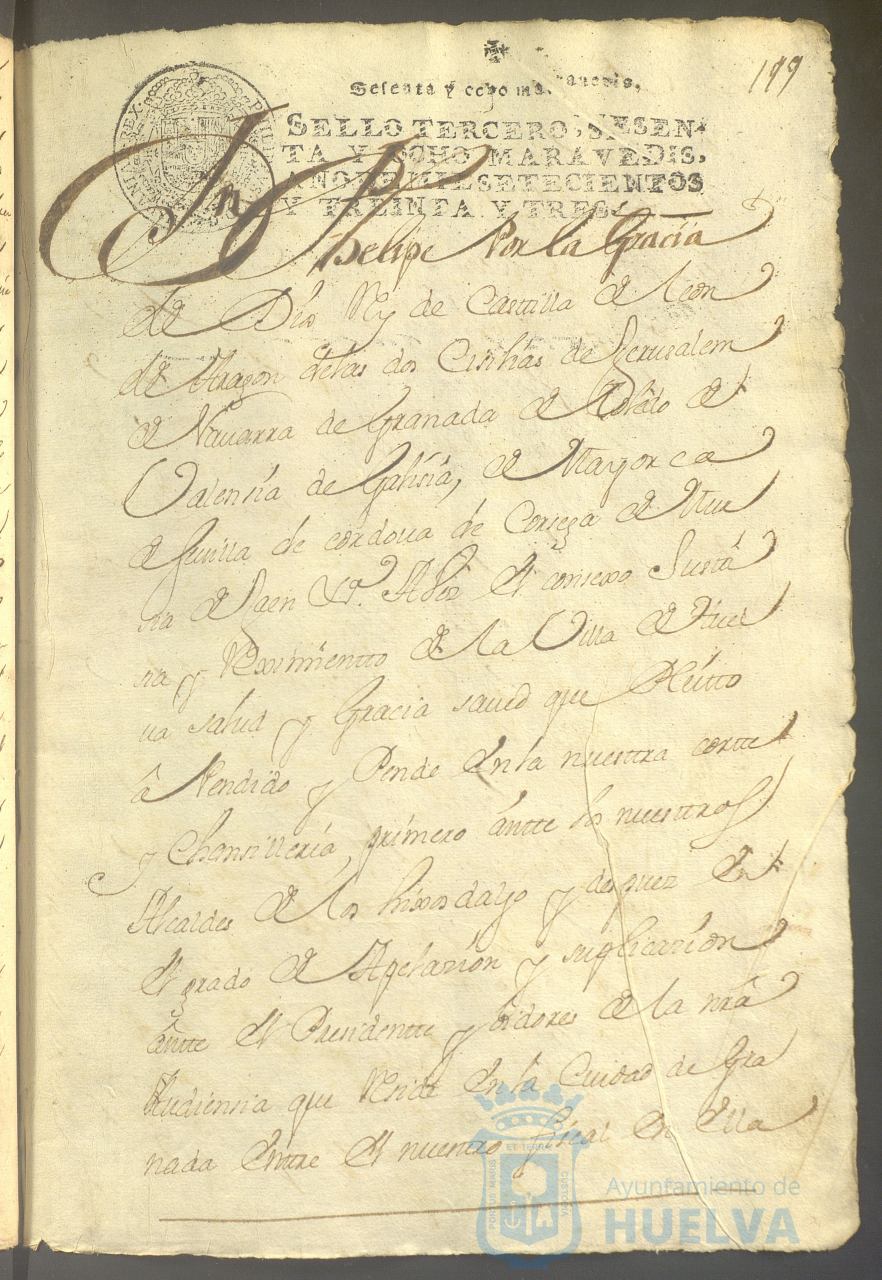 199
Sesenta y ocho maravedis,
SELLO TERCERO, SESEN-
TA Y OCHO MARAVEDIS,
AÑO DE MIL SETECIENTOS
Y TREINTA Y TRES.
Dn Phelipe Por la Gracia
de Dios Rey de Castilla de Leon
de Aragon de las dos Cisilias de Jerusalem
de Nauarra de Granada de Toledo de
Valensia de Galisia, de Mayorca
de Seuilla de cordoua de Corsega de Mur
sia de Jaen &a. A Vos el consexo Justi
sia y Reximientto de la Villa de Huel
ua salud y Gracia saued que Pleitto
à Pendido y Pende en la nuestra cortte
y Chansilleria, primero antte los nuesttros
Alcaldes de los hixosdalgo y despuez en
el grado de Apelazion y suplicazion
antte el Presidentte y oidores de la nrâ
Audiensia que Reside en la Ciudad de Gra
nada enttre el nuesttro fiscal en ella
PORTUS MARIS
ET TERRE
CUSTODIA
Ayuntamiento de
HUELVA